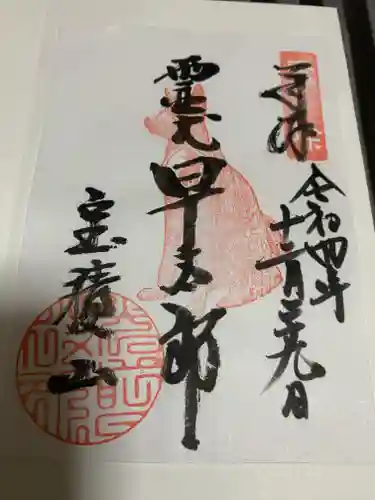 奉拝
令和四年
十二月二十九日
霊犬
早太郎
宝積山